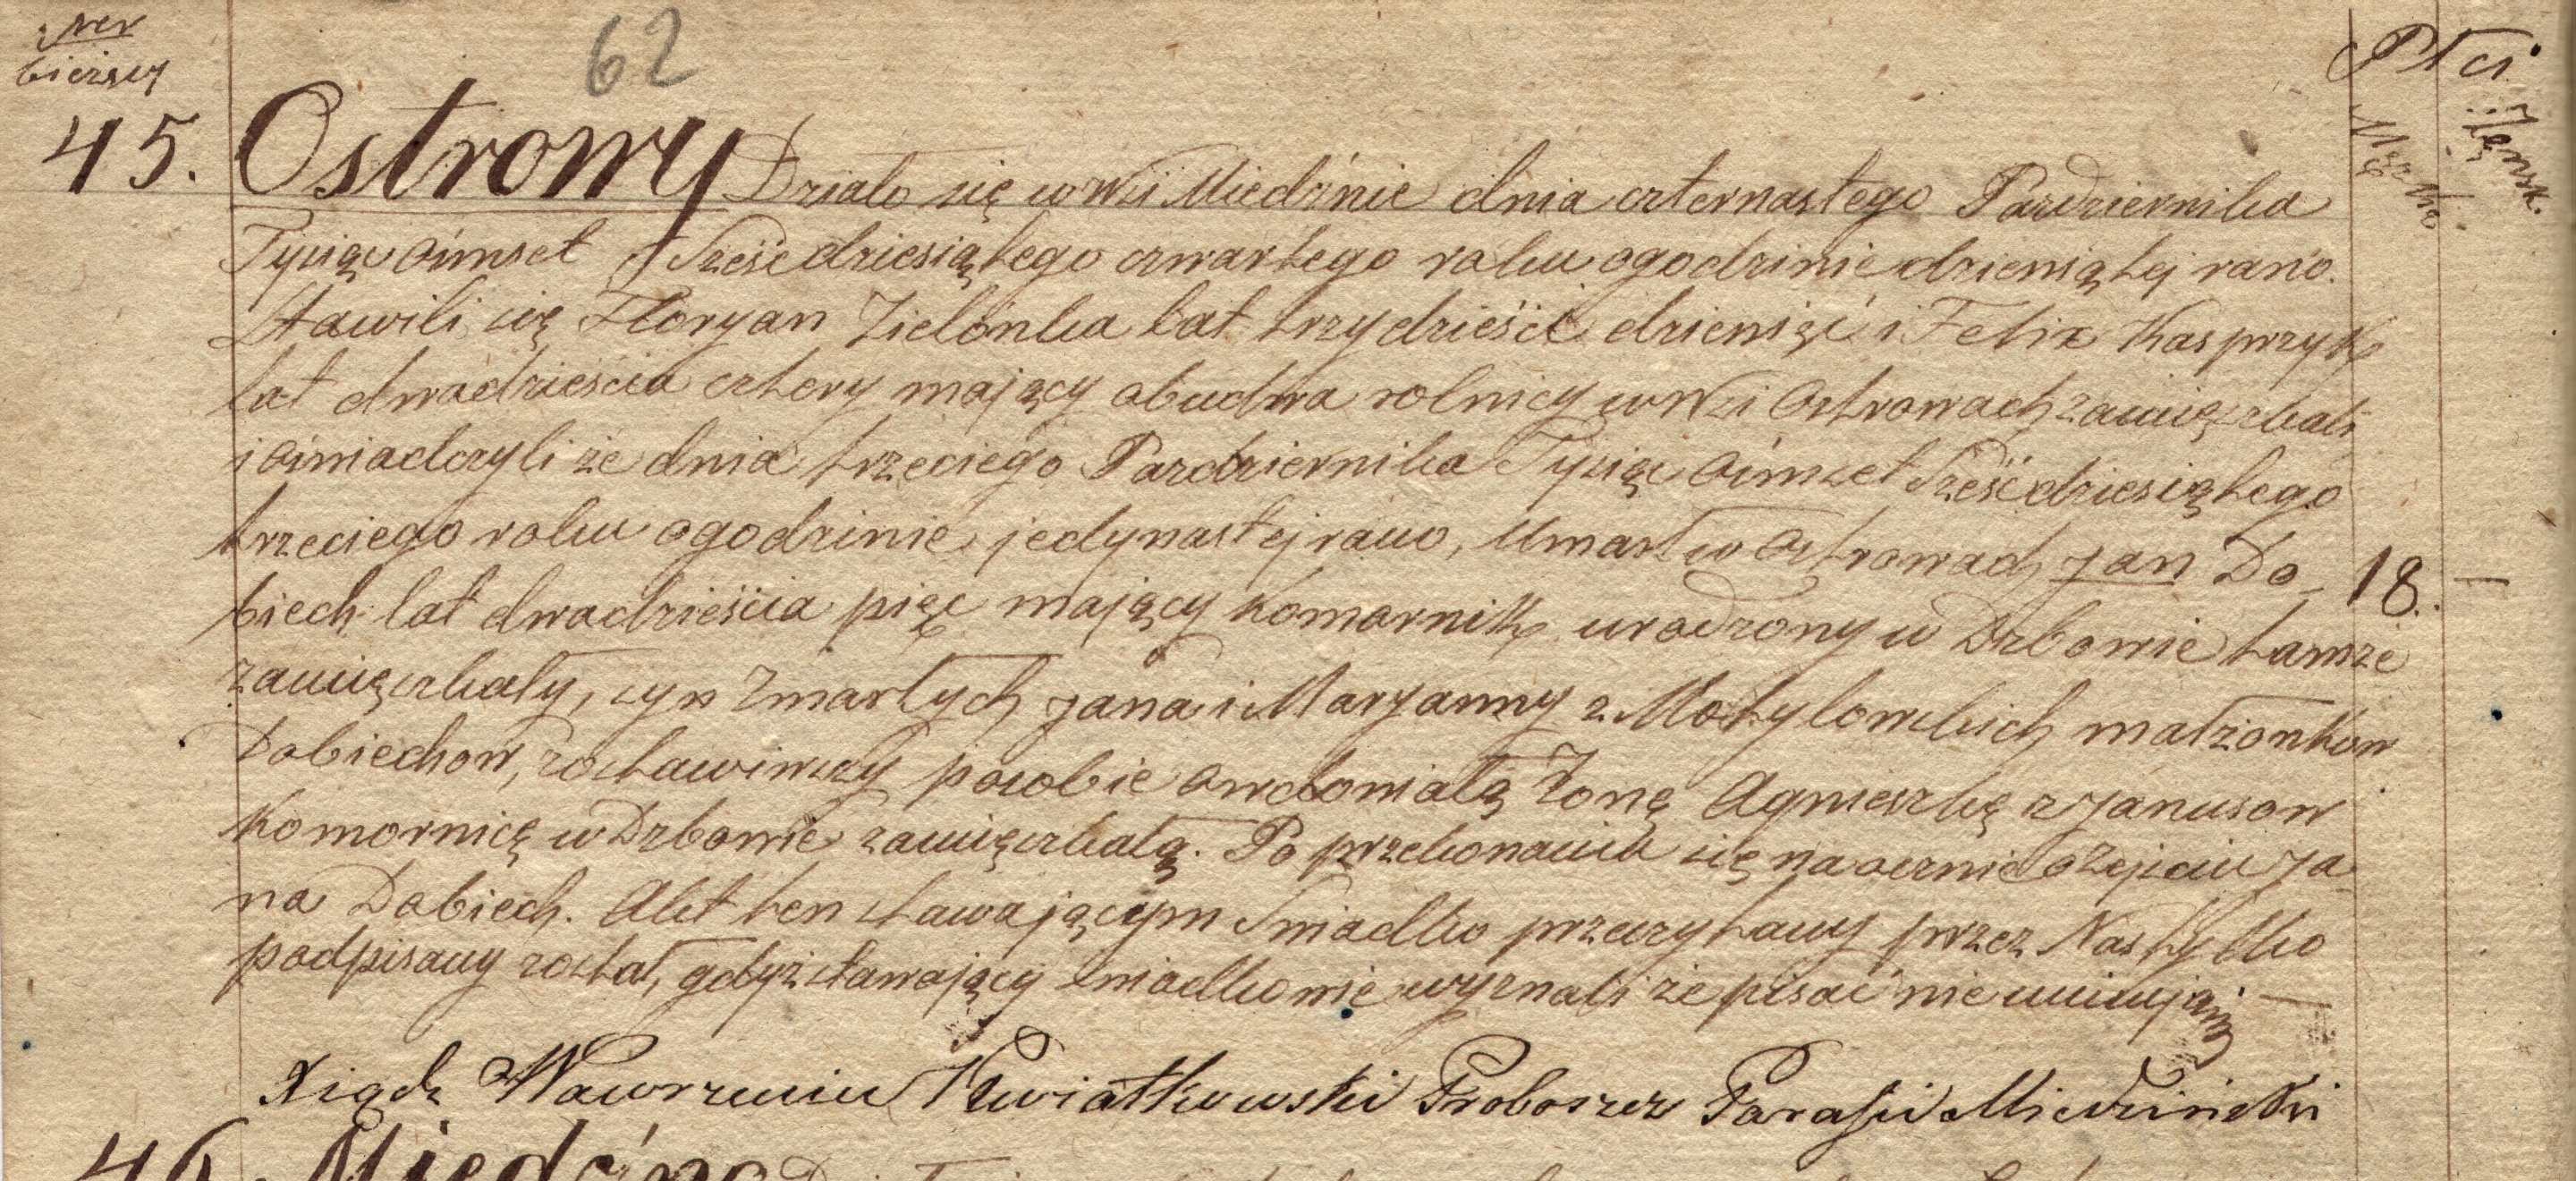 Ner
bieżący
62
Płci
Męzka
Żeńsk.
45. Ostrowy Działo się w Wsi Miedźnie dnia czternastego Pazdziernika
Tysiąc ośmset Sześcdziesiątego czwartego roku o godzinie dziewiątej rano.
Stawili się Floryan Zielonka lat trzydzieści dziewięć i Felix Kasprzyk
lat dwadzieścia cztery mający obudwa rolnicy w Wsi Ostrowach zamięszkali
i oświadczyli że dnia trzeciego Pazdziernika Tysiąc ośmset Sześcdziesiątego
trzeciego roku o godzinie jedynastej rano, Umarł w Ostrowach Jan Do- 18. —
biech lat dwadzieścia pięc mający Komornik urodzony w Dzbowie tamże
zamięszkały, syn Zmarłych Jana i Maryanny z Motylowskich małżonkow
Dobiechow, zostawiwszy po sobie owdowiałą Żonę Agnieszkę z Janusow
Komornicę w Dzbowie zamięszkałą. Po przekonaniu się naocznie o zejściu Ja-
na Dobiech. Akt ten stawającym Swiadko przeczytany przez Nas tylko
podpisany został, gdyż stawający swiadkowie wyznali że pisać nie umieją
Xiądz Wawrzeniec Kwiatkowski Proboszcz Parafii Miedzińskii
46. Miedźno